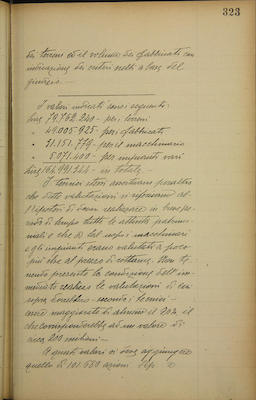 323
dei terreni ed il volume dei fabbricati con
indicazione dei criteri scelti a base del
giudizio. —
I valori indicati sono i seguenti:
Lire 79.762.240 - per i terreni
" 49.005.925 - per i fabbricati
" 31.151.779 - per il macchinario
" 5.071.400 - per impianti vari
Lire 164.991.344 - in totale. —
I tecnici stessi avvertivano peraltro
che dette valutazioni si riferivano al
di beni
di tempo tutte le attività patrimo-
niali e che a tal uopo i macchinari
e gli impianti erano valutati a poco
più che al prezzo di rottame. Non te-
nendo presente la condizione dell'im-
mediato realizzo le valutazioni di cui
sopra dovrebbero - secondo i tecnici -
essere maggiorate di almeno il 20% il
che corrisponderebbe ad un valore di
circa 200 milioni. —
A questi valori si deve aggiungere
quello di 101.550 azioni